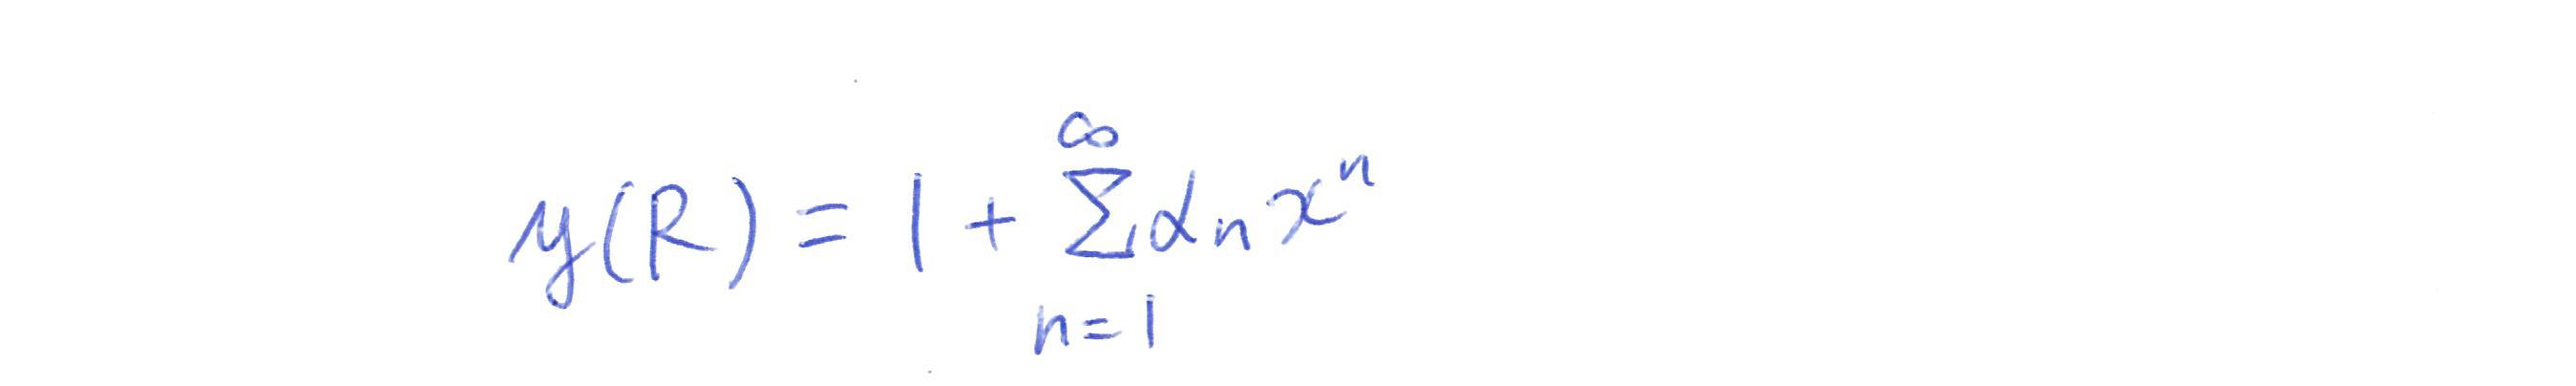 y(R) = 1 + \sum_{n=1}^{\infty} \alpha_n x^n